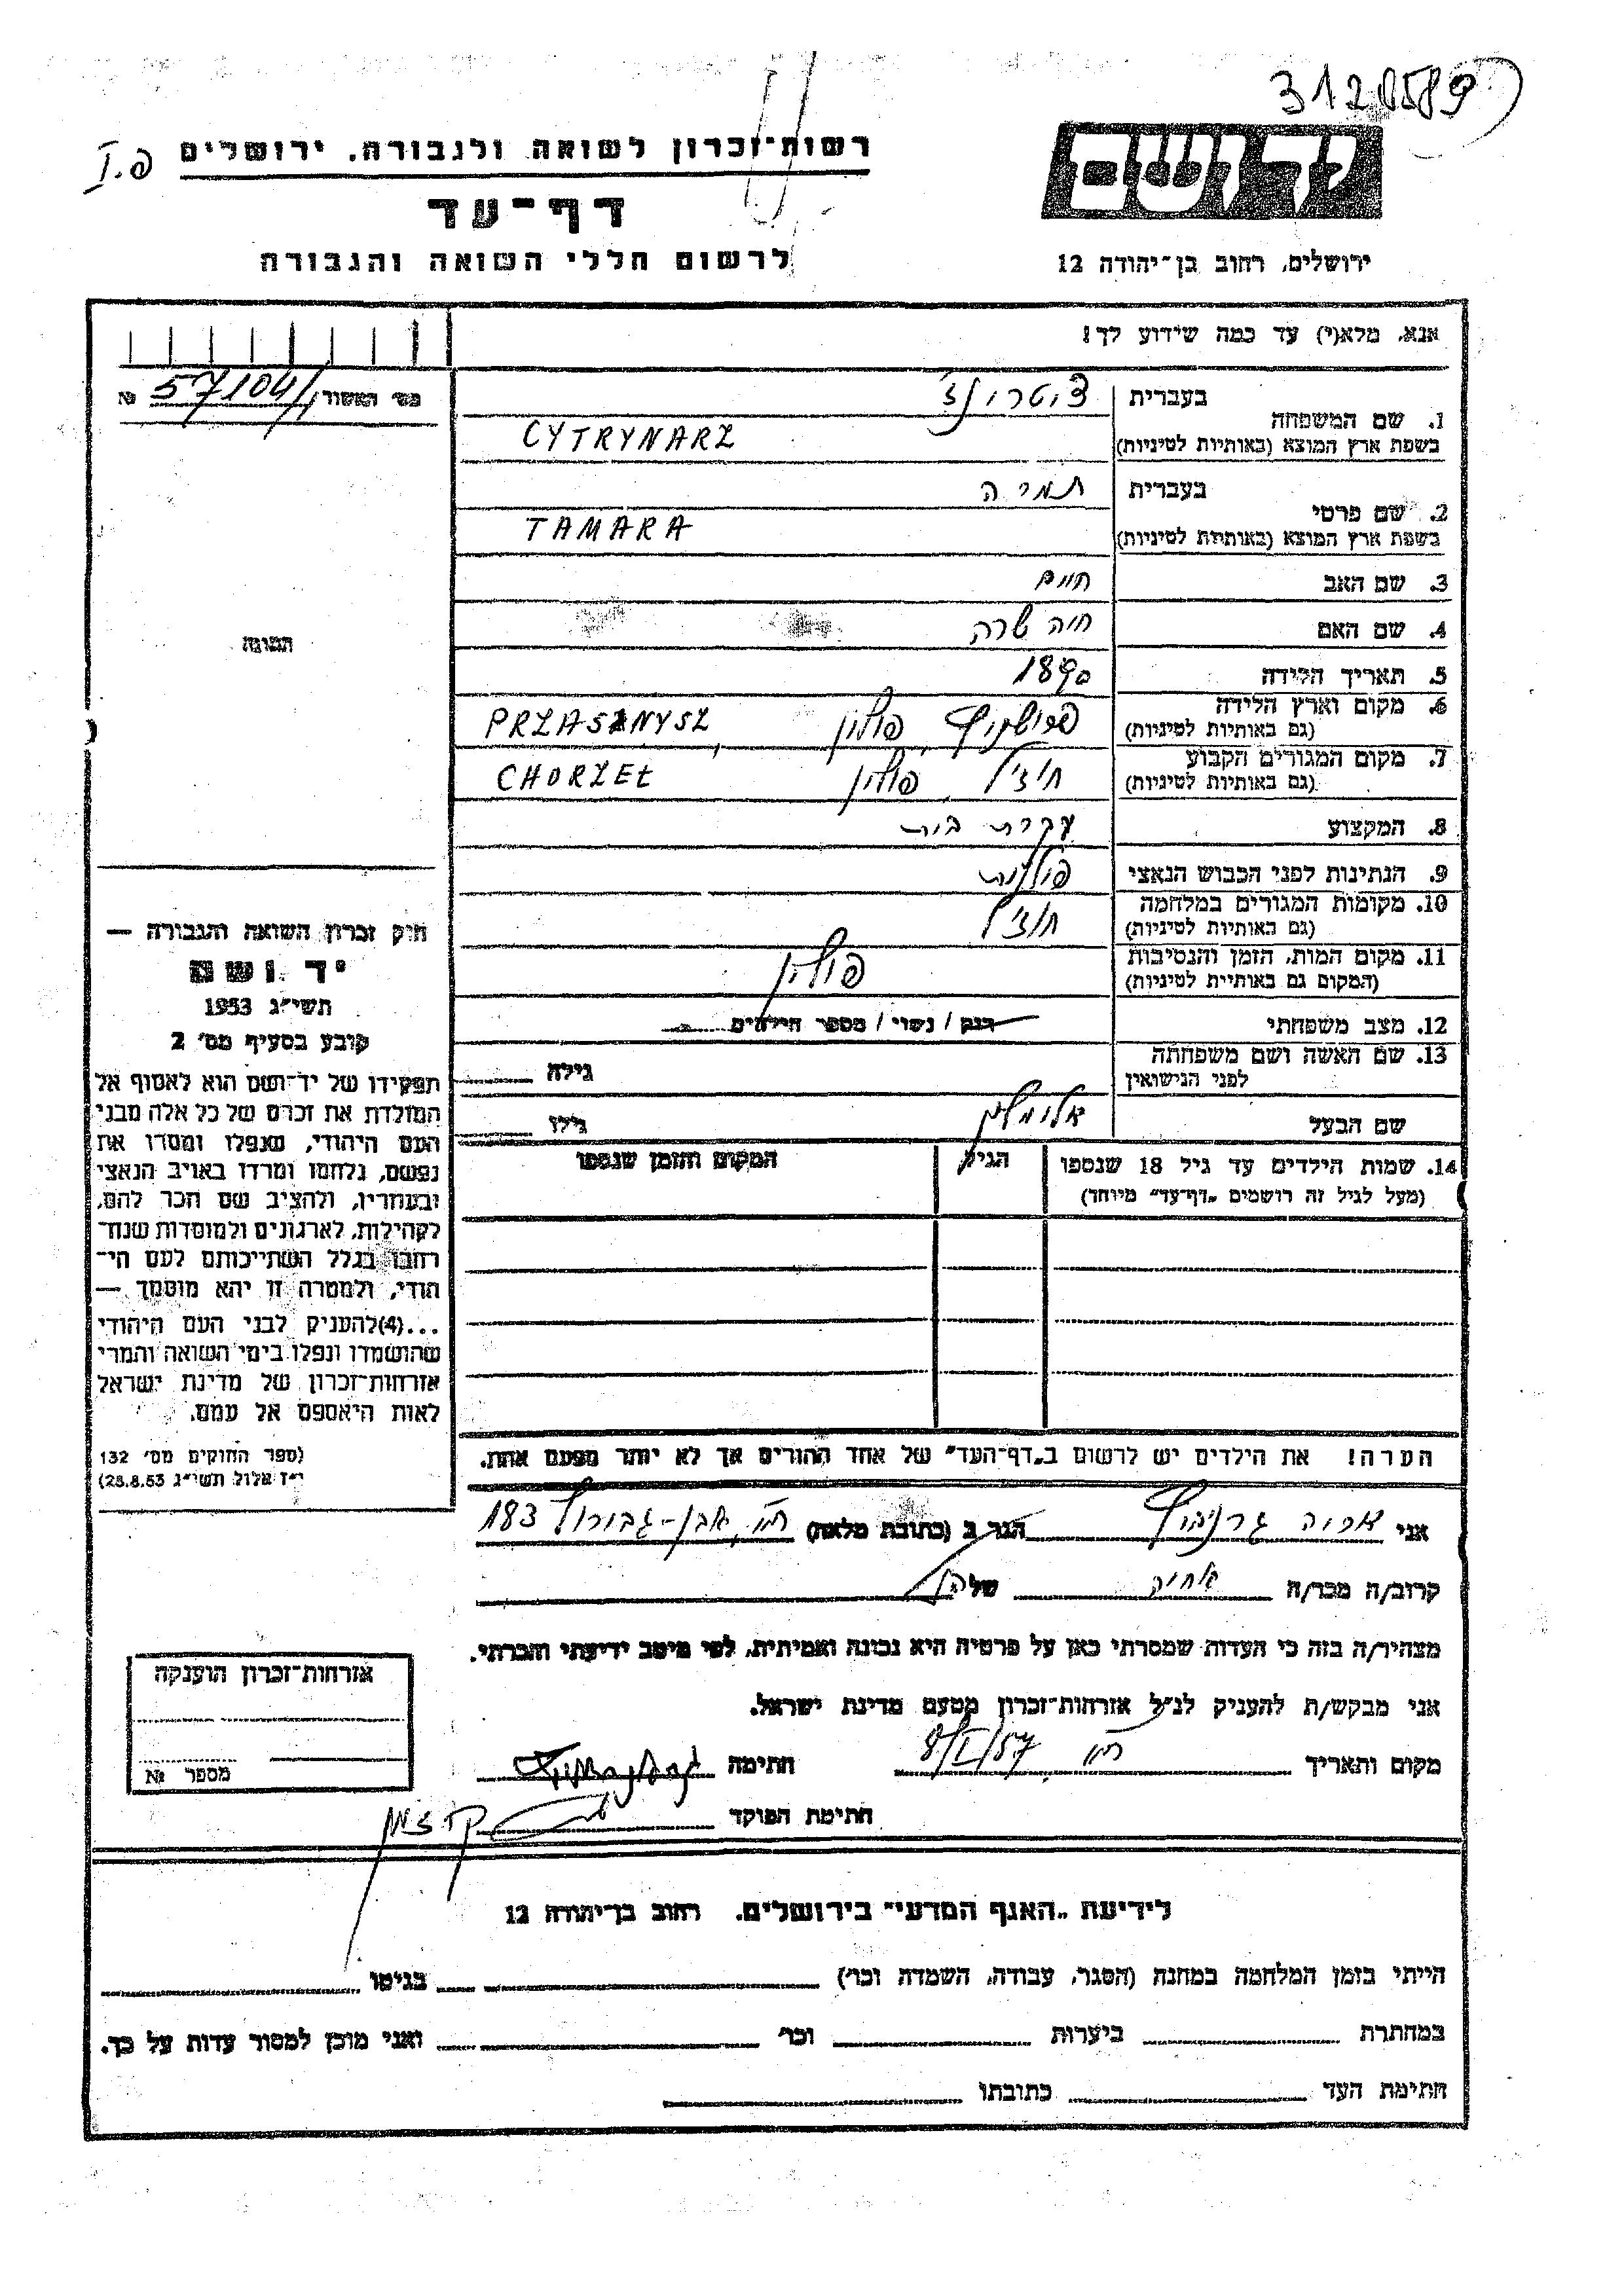 3120589
רשות־זכרון לשואה ולגבורה, ירושלים
דף־עד
לרשום חללי השואה והגבורה
יד ושם
ירושלים, רחוב בן־יהודה 12
אנא, מלא(י) עד כמה שידוע לך!
מס׳ האשור 57104 №
1. שם המשפחה
בעברית
בשפת ארץ המוצא (באותיות לטיניות)
CYTRYNARZ
2. שם פרטי
בעברית תמרה
בשפת ארץ המוצא (באותיות לטיניות)
TAMARA
3. שם האב חיים
4. שם האם חיה שרה
5. תאריך הלידה 1890
6. מקום וארץ הלידה
(גם באותיות לטיניות)
פולין, PRZASZNYSZ
7. מקום המגורים הקבוע
(גם באותיות לטיניות)
חוז׳ל פולין CHORZEL
8. המקצוע עקרת בית
9. הנתינות לפני הכבוש הנאצי פולנית
10. מקומות המגורים במלחמה
(גם באותיות לטיניות)
חוז׳ל
11. מקום המות, הזמן והנסיבות
(המקום גם באותיות לטיניות)
פולין
12. מצב משפחתי רווק / נשוי / מספר הילדים
13. שם האשה ושם משפחתה
לפני הנישואין
גילה
שם הבעל אלימלך גילו
14. שמות הילדים עד גיל 18 שנספו
(מעל לגיל זה רושמים „דף־עד״ מיוחד)
הגיל
המקום והזמן שנספו
הערה! את הילדים יש לרשום ב„דף־העד״ של אחד ההורים אך לא יותר מפעם אחת.
התמונה
חוק זכרון השואה והגבורה —
יד ושם
תשי״ג 1953
קובע בסעיף מס׳ 2
תפקידו של יד־ושם הוא לאסוף אל
המולדת את זכרם של כל אלה מבני
העם היהודי, שנפלו ומסרו את
נפשם, נלחמו ומרדו באויב הנאצי
ובעוזריו, ולהציב שם וזכר להם,
לקהילות, לארגונים ולמוסדות שנח־
רבו בגלל השתייכותם לעם הי־
הודי, ולמטרה זו יהא מוסמך —
...(4)להעניק לבני העם היהודי
שהושמדו ונפלו בימי השואה והמרי
אזרחות־זכרון של מדינת ישראל
לאות היאספם אל עמם.
(ספר החוקים מס׳ 132
י״ז אלול תשי״ג 28.8.53)
אני אריה הגר ב (כתובת מלאה) ת״א, אבן־גבירול 183
קרוב/ה מכר/ה של
מצהיר/ה בזה כי העדות שמסרתי כאן על פרטיה היא נכונה ואמיתית, לפי מיטב ידיעתי והכרתי.
אני מבקש/ת להעניק לנ״ל אזרחות־זכרון מטעם מדינת ישראל.
מקום ותאריך ת״א 8/I/57 חתימה
חתימת הפוקד
אזרחות־זכרון הוענקה
מספר №
לידיעת „האגף המדעי״ בירושלים, רחוב בן־יהודה 12
הייתי בזמן המלחמה במחנה (הסגר, עבודה, השמדה וכו׳) בגיטו
במחתרת ביערות וכו׳ ואני מוכן למסור עדות על כך.
חתימת העד כתובתו